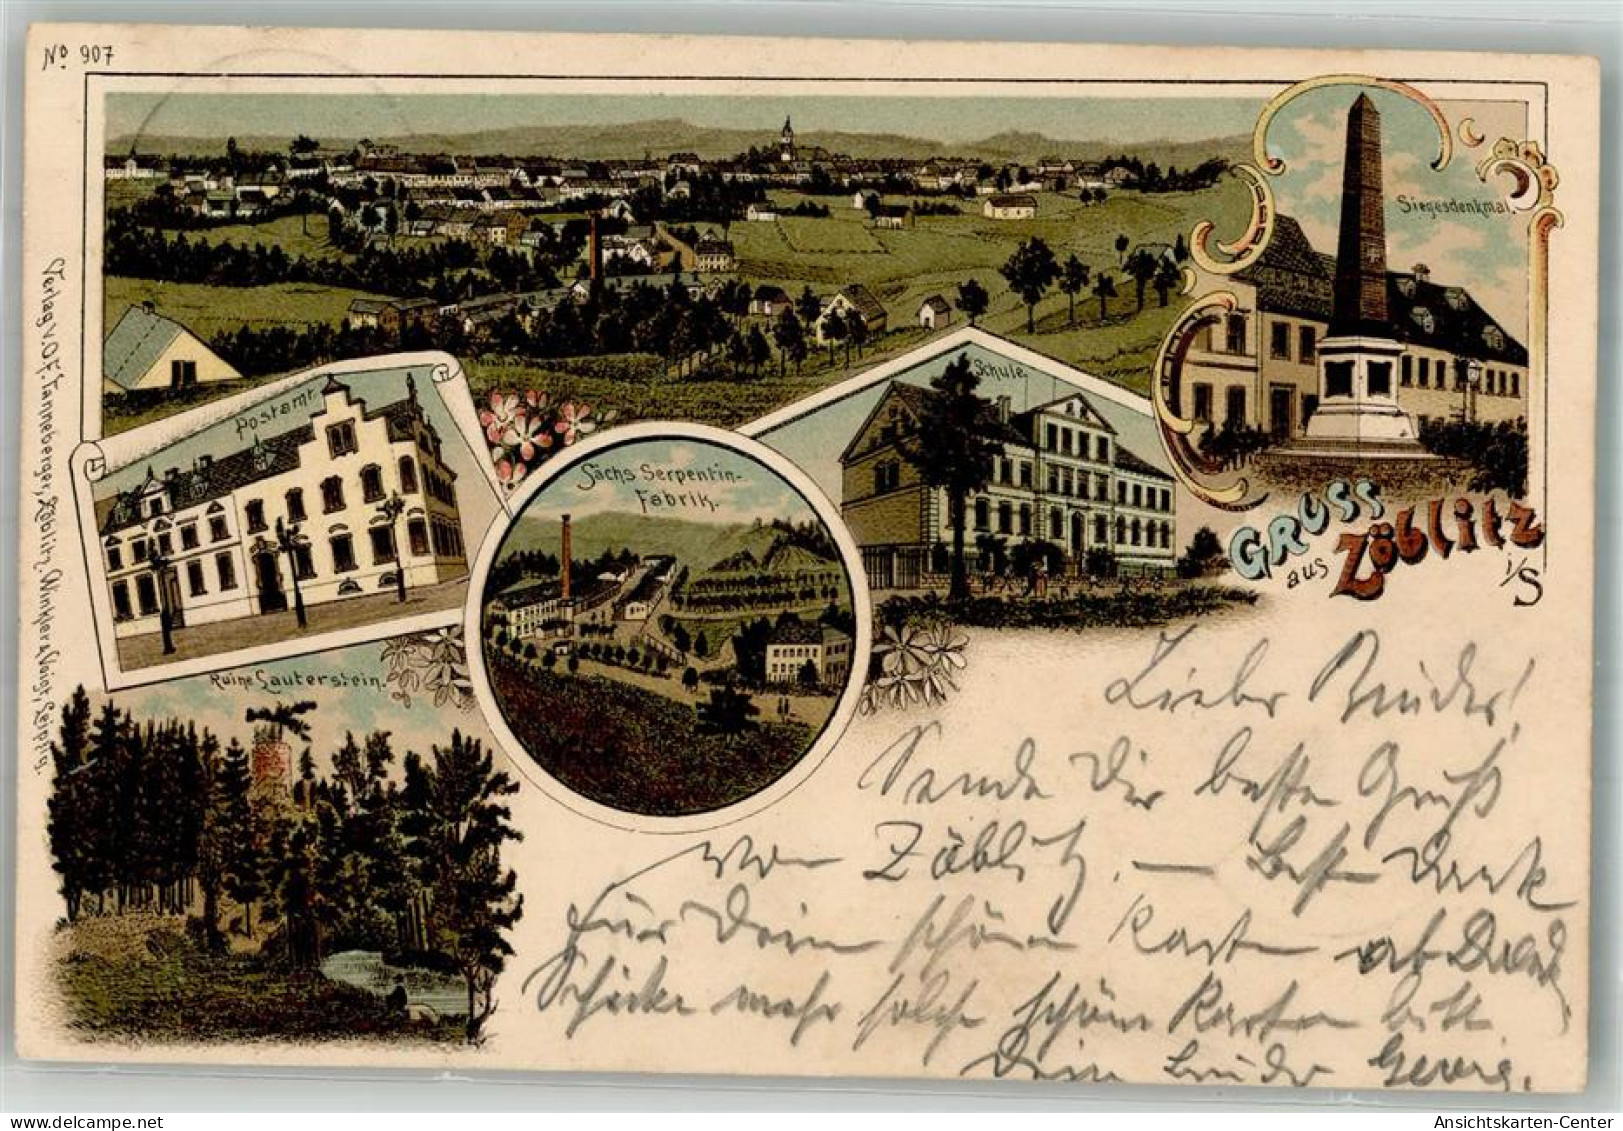 No. 907
Siegesdenkmal.
Postamt.
Schule.
Sächs. Serpentin-
Fabrik.
Gruss
aus Zöblitz
i/S
Ruine Lauterstein.
Verlag v. O.F. Tanneberger, Zöblitz, Winkler & Voigt, Leipzig.
Lieber Bruder!
Sende Dir beste Gruß
von Zöblitz. — Besten Dank
für Dein schöne Karte
Schicke mehr solche schöne Karten bitte
Dein Bruder Georg.
Ansichtskarten-Center